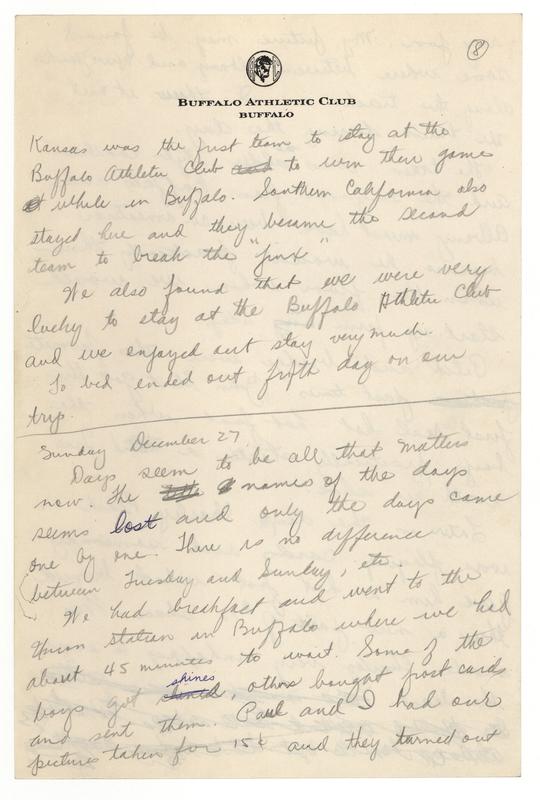 8
BUFFALO ATHLETIC CLUB
BUFFALO
Kansas was the first team to stay at the
Buffalo Athletic Club and to win their game
while in Buffalo. Southern California also
stayed here and they became the second
team to break the "jinx"
We also found that we were very
lucky to stay at the Buffalo Athletic Club
and we enjoyed out stay very much.
To bed ended out fifth day on our
trip.
Sunday December 27.
Days seem to be all that matters
now. The names of the days
seems lost and only the days came
one by one. There is no difference
between Tuesday and Sunday, etc.
We had breakfast and went to the
Union station in Buffalo where we had
about 45 minutes to wait. Some of the
boys got shines, others bought post cards
and sent them. Paul and I had our
pictures taken for 15¢ and they turned out